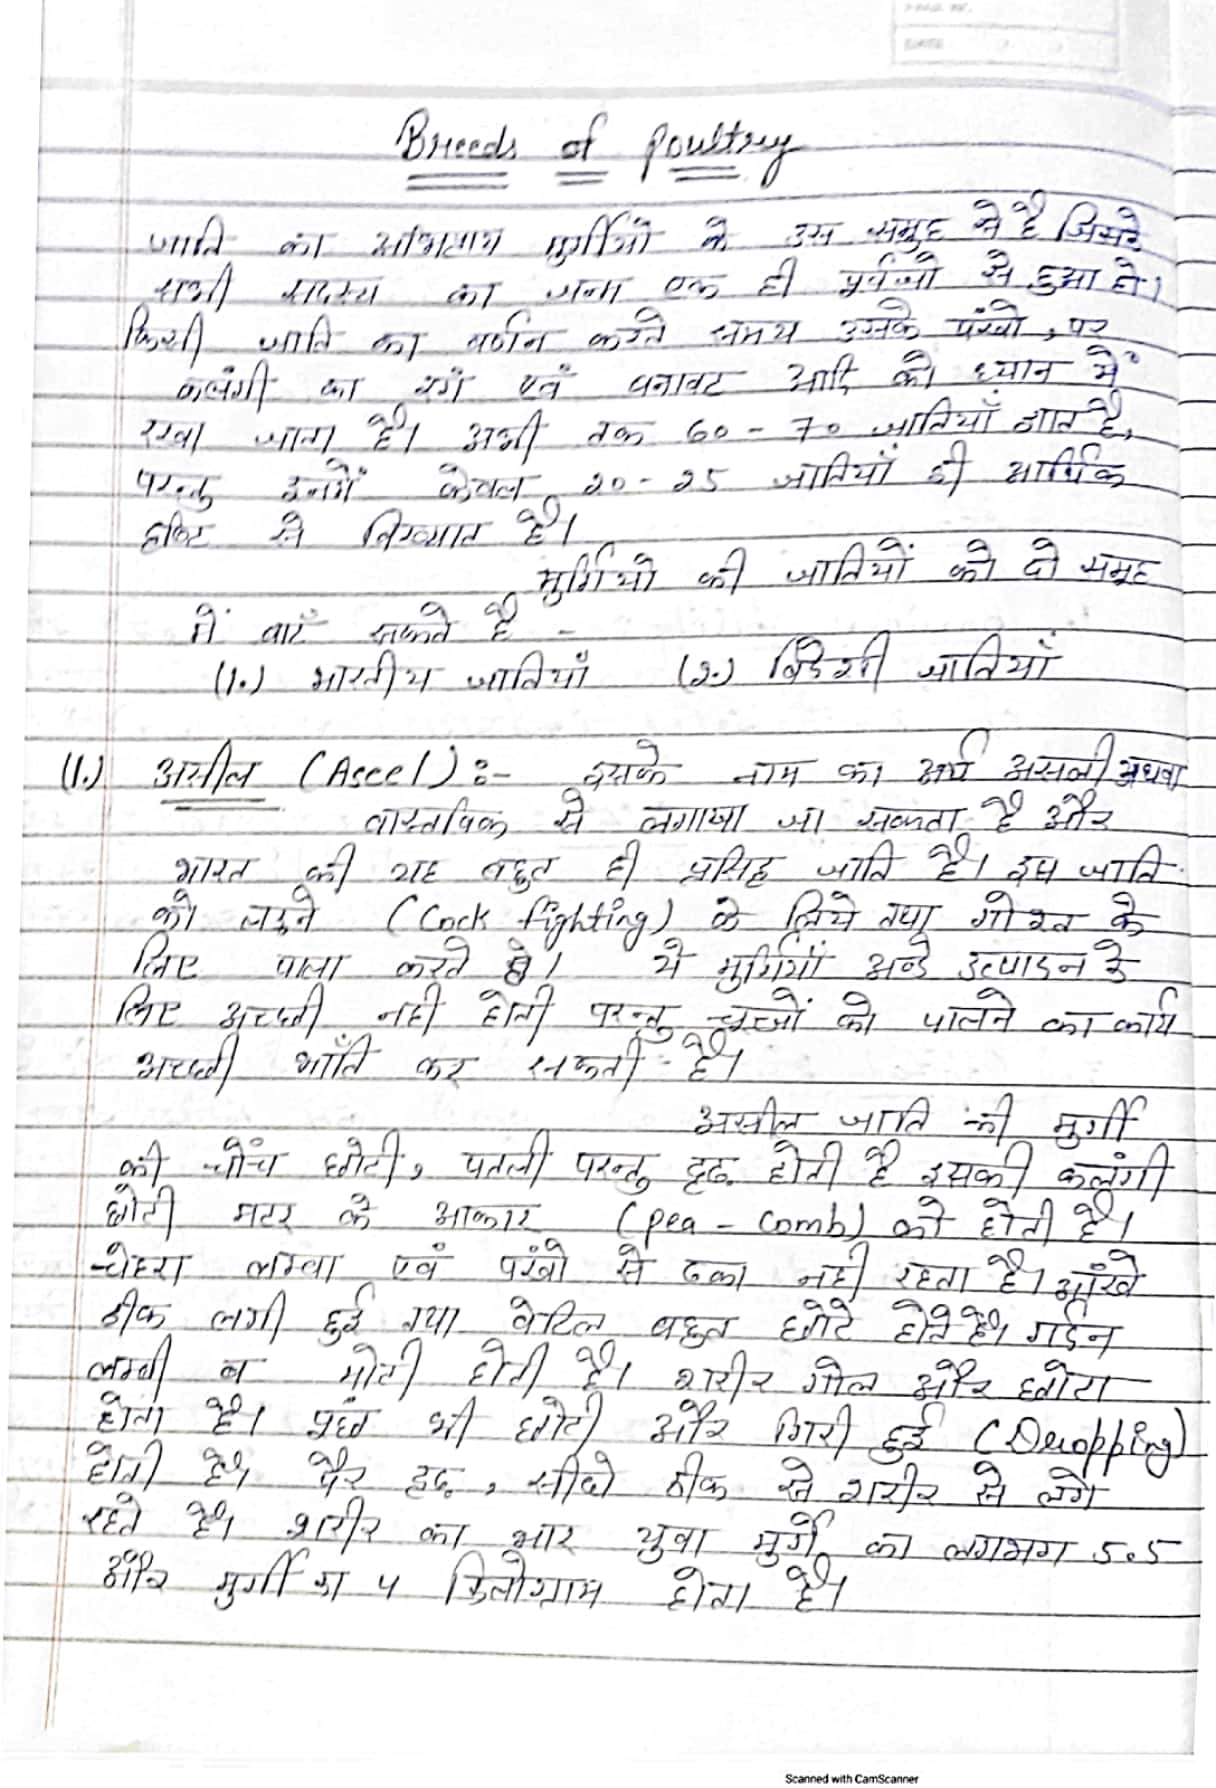 Breeds of Poultry
जाति का अभिप्राय मुर्गीयो के उस समुह से है जिसके
सभी सदस्य का जन्म एक ही पूर्वजो से हुआ हो।
किसी जाति का वर्णन करते समय उसके पंखो, पर
कलंगी का रंग एवं बनावट आदि को ध्यान में
रखा जाता है। अभी तक 60 - 70 जातियाँ ज्ञात है,
परन्तु इनमें केवल 20 - 25 जातियाँ ही आर्थिक
दृष्टि से विख्यात है।
मुर्गियो की जातियों को दो समूह
में बाटँ सकते है -
(1.) भारतीय जातियाँ (2.) विदेशी जातियाँ
(1.) असील (Aseel) :- इसके नाम का अर्थ असली अथवा
वास्तविक से लगाया जा सकता है और
भारत की यह बहुत ही प्रसिद्ध जाति है। इस जाति
को लड़ने (Cock fighting) के लिये तथा गोश्त के
लिए पाला करते है। ये मुर्गियाँ अन्डे उत्पादन के
लिए अच्छी नही होती परन्तु चूजों को पालने का कार्य
अच्छी भाँति कर सकती है।
असील जाति की मुर्गी
की चोंच छोटी, पतली परन्तु दृढ होती है इसकी कलंगी
छोटी मटर के आकार (pea - comb) की होती है।
चेहरा लम्बा एवं पंखो से ढका नही रहता है। आँखे
ठीक लगी हुई तथा वेटिल बहुत छोटे होते है। गर्दन
लम्बी व मोटी होती है। शरीर गोल और छोटा
होता है। पूछं भी छोटी और गिरी हुई (Dropping)
होती है। पैर दृढ, सीधे ठीक से शरीर से लगे
रहते है। शरीर का भार युवा मुर्गे का लगभग 5.5
और मुर्गी का ५ किलोग्राम होता है।
Scanned with CamScanner